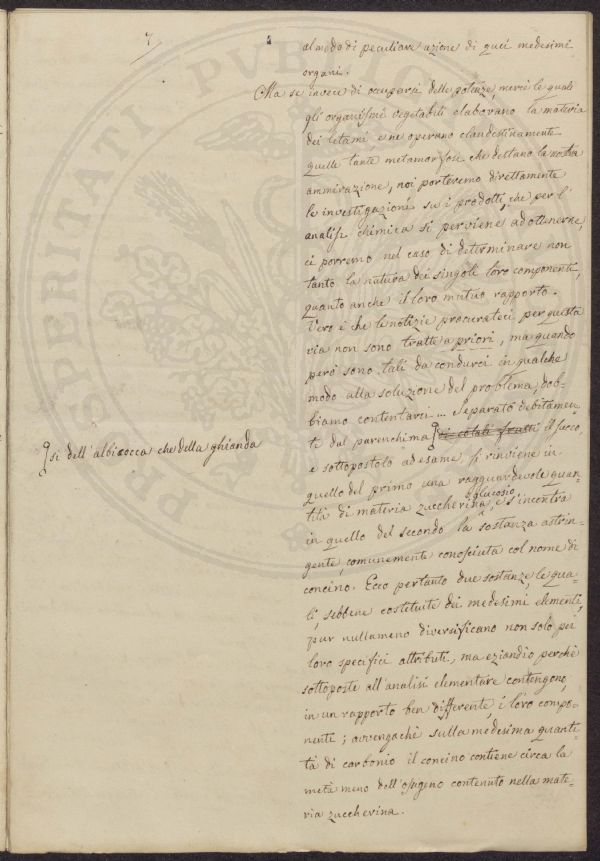 7
al modo di peculiare azione di quei medesimi
organi.
Ma se invece di occuparsi delle potenze, mercè le quali
gli organismi vegetabili elaborano la materia
dei letami, e ne operano clandestinamente
quelle tante metamorfosi che destano la nostra
ammirazione, noi porteremo direttamente
le investigazioni su i prodotti, che per l'
analisi chimica si perviene ad ottenerne,
ci porremo nel caso di determinare non
tanto la natura dei singoli loro componenti,
quanto anche il loro mutuo rapporto.
Vero è che le notizie procurateci per questa
via non sono tratte a priori, ma quando
però sono tali da condurci in qualche
modo alla soluzione del problema, dob-
biamo contentarci... Separato debitamen-
te dal parenchima di cotali frutti il succo,
si dell'albicocca che della ghianda
e sottopostolo ad esame, si rinviene in
quello del primo una ragguardevole quan-
tità di materia zuccherina, e s'incontra
o glucosio
in quello del secondo la sostanza astrin-
gente, comunemente conosciuta col nome di
concino. Ecco pertanto due sostanze, le qua-
li, sebbene costituite dei medesimi elementi,
pur nullameno diversificano non solo pei
loro specifici attributi, ma eziandio perchè
sottoposte all'analisi elementare contengono,
in un rapporto ben differente, i loro compo-
nenti; avvengachè sulla medesima quanti-
tà di carbonio il concino contiene circa la
metà meno dell'ossigeno contenuto nella mate-
ria zuccherina.
PROSPERITATI PUBLICAE